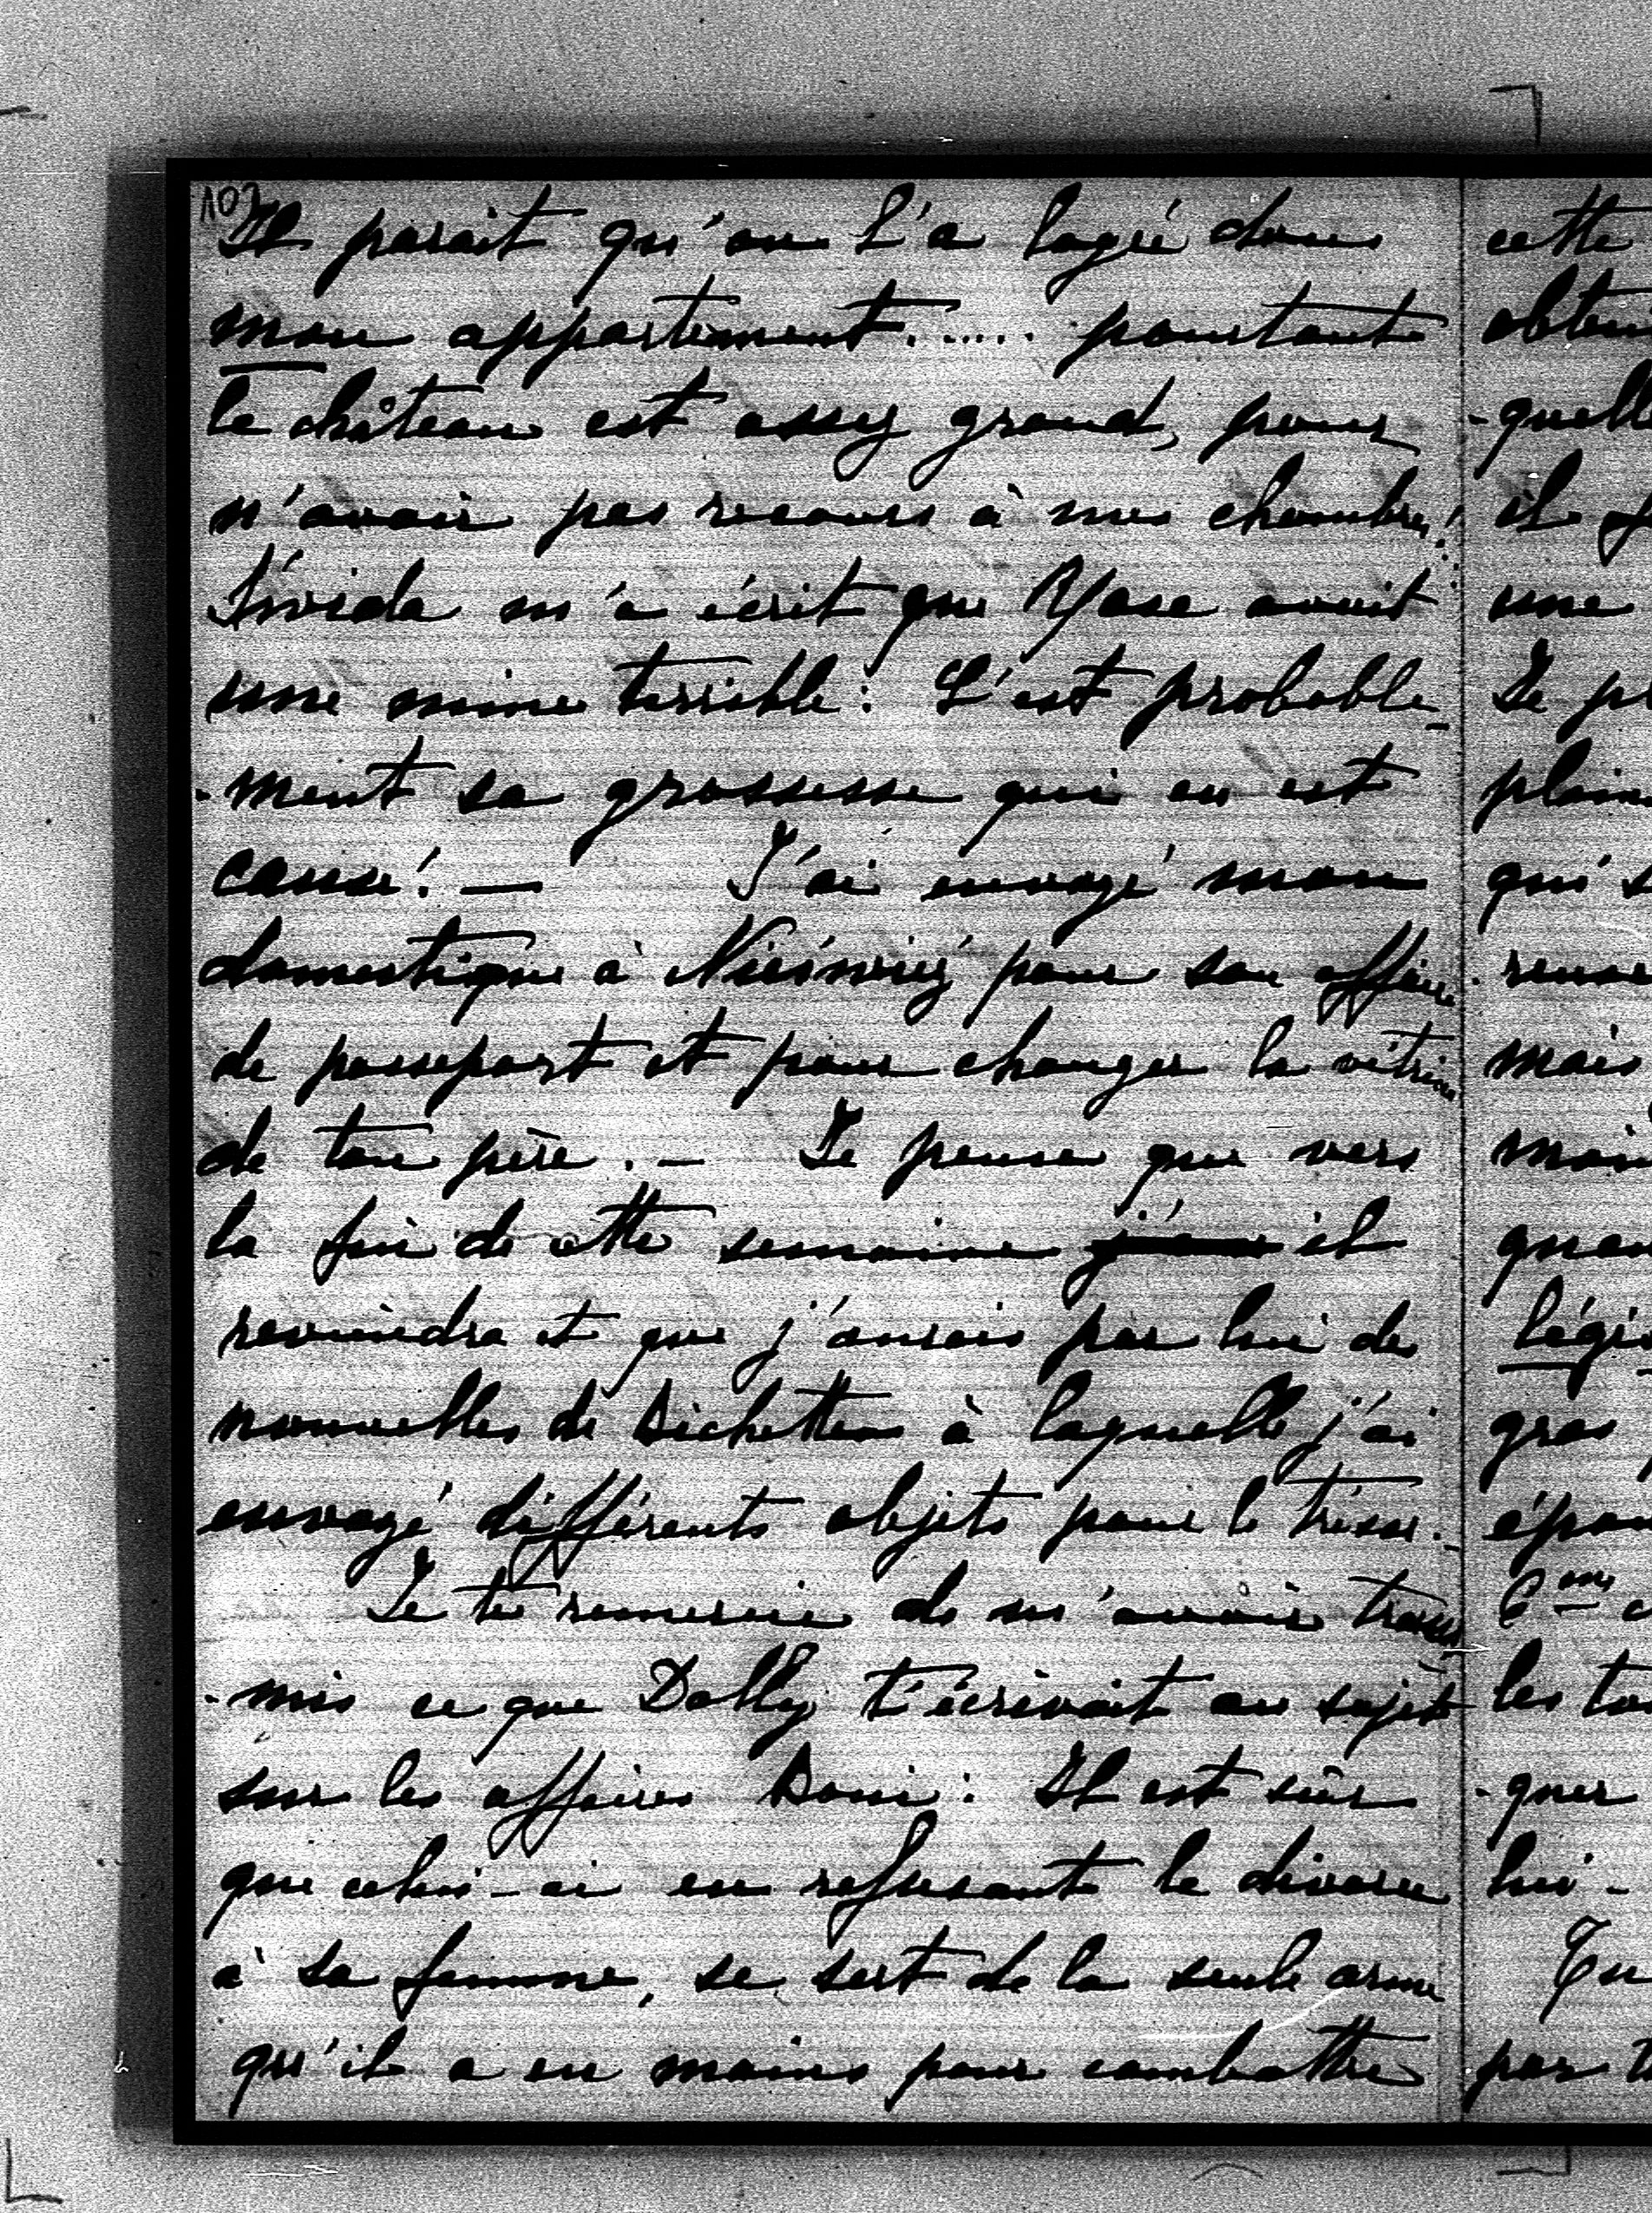 103
Il parait qu'on l'a logée dans
mon appartement...... pourtant
le château est assez grand, pour
n'avoir pas recours à mes chambres!...
m'a écrit que Rose avait
une mine terrible: C'est probable-
-ment sa grossesse qui en est
cause! — J'ai envoyé mon
domestique à Nieśwież pour son affaire
de passeport et pour changer la vitrine
de ton père. — Je pense que vers
la fin de cette semaine il
reviendra et que j'aurais par lui de
nouvelles de Bichette à laquelle j'ai
envoyé différents objets pour le trésor. -
Je te remercie de m'avoir trans
-mis ce que Dolly t'écrivait au sujet
sur les affaires Boni: Il est sûr
que celui-ci en refusant le divorce
à sa femme, se sert de la seule arme
qu'il a en mains pour combattre
cette
-quell
il
une
Je
qui
mais
gros
les
-quer
lui -